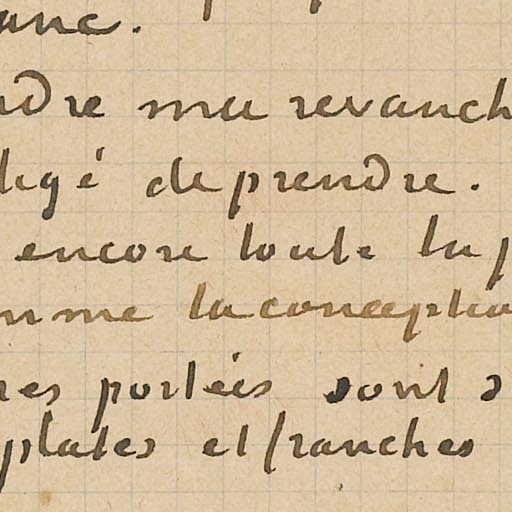 anc.
ndre ma revanch
ligé de prendre.
encore toute la p
mme la conceptio
res portées sont s
plates et franches